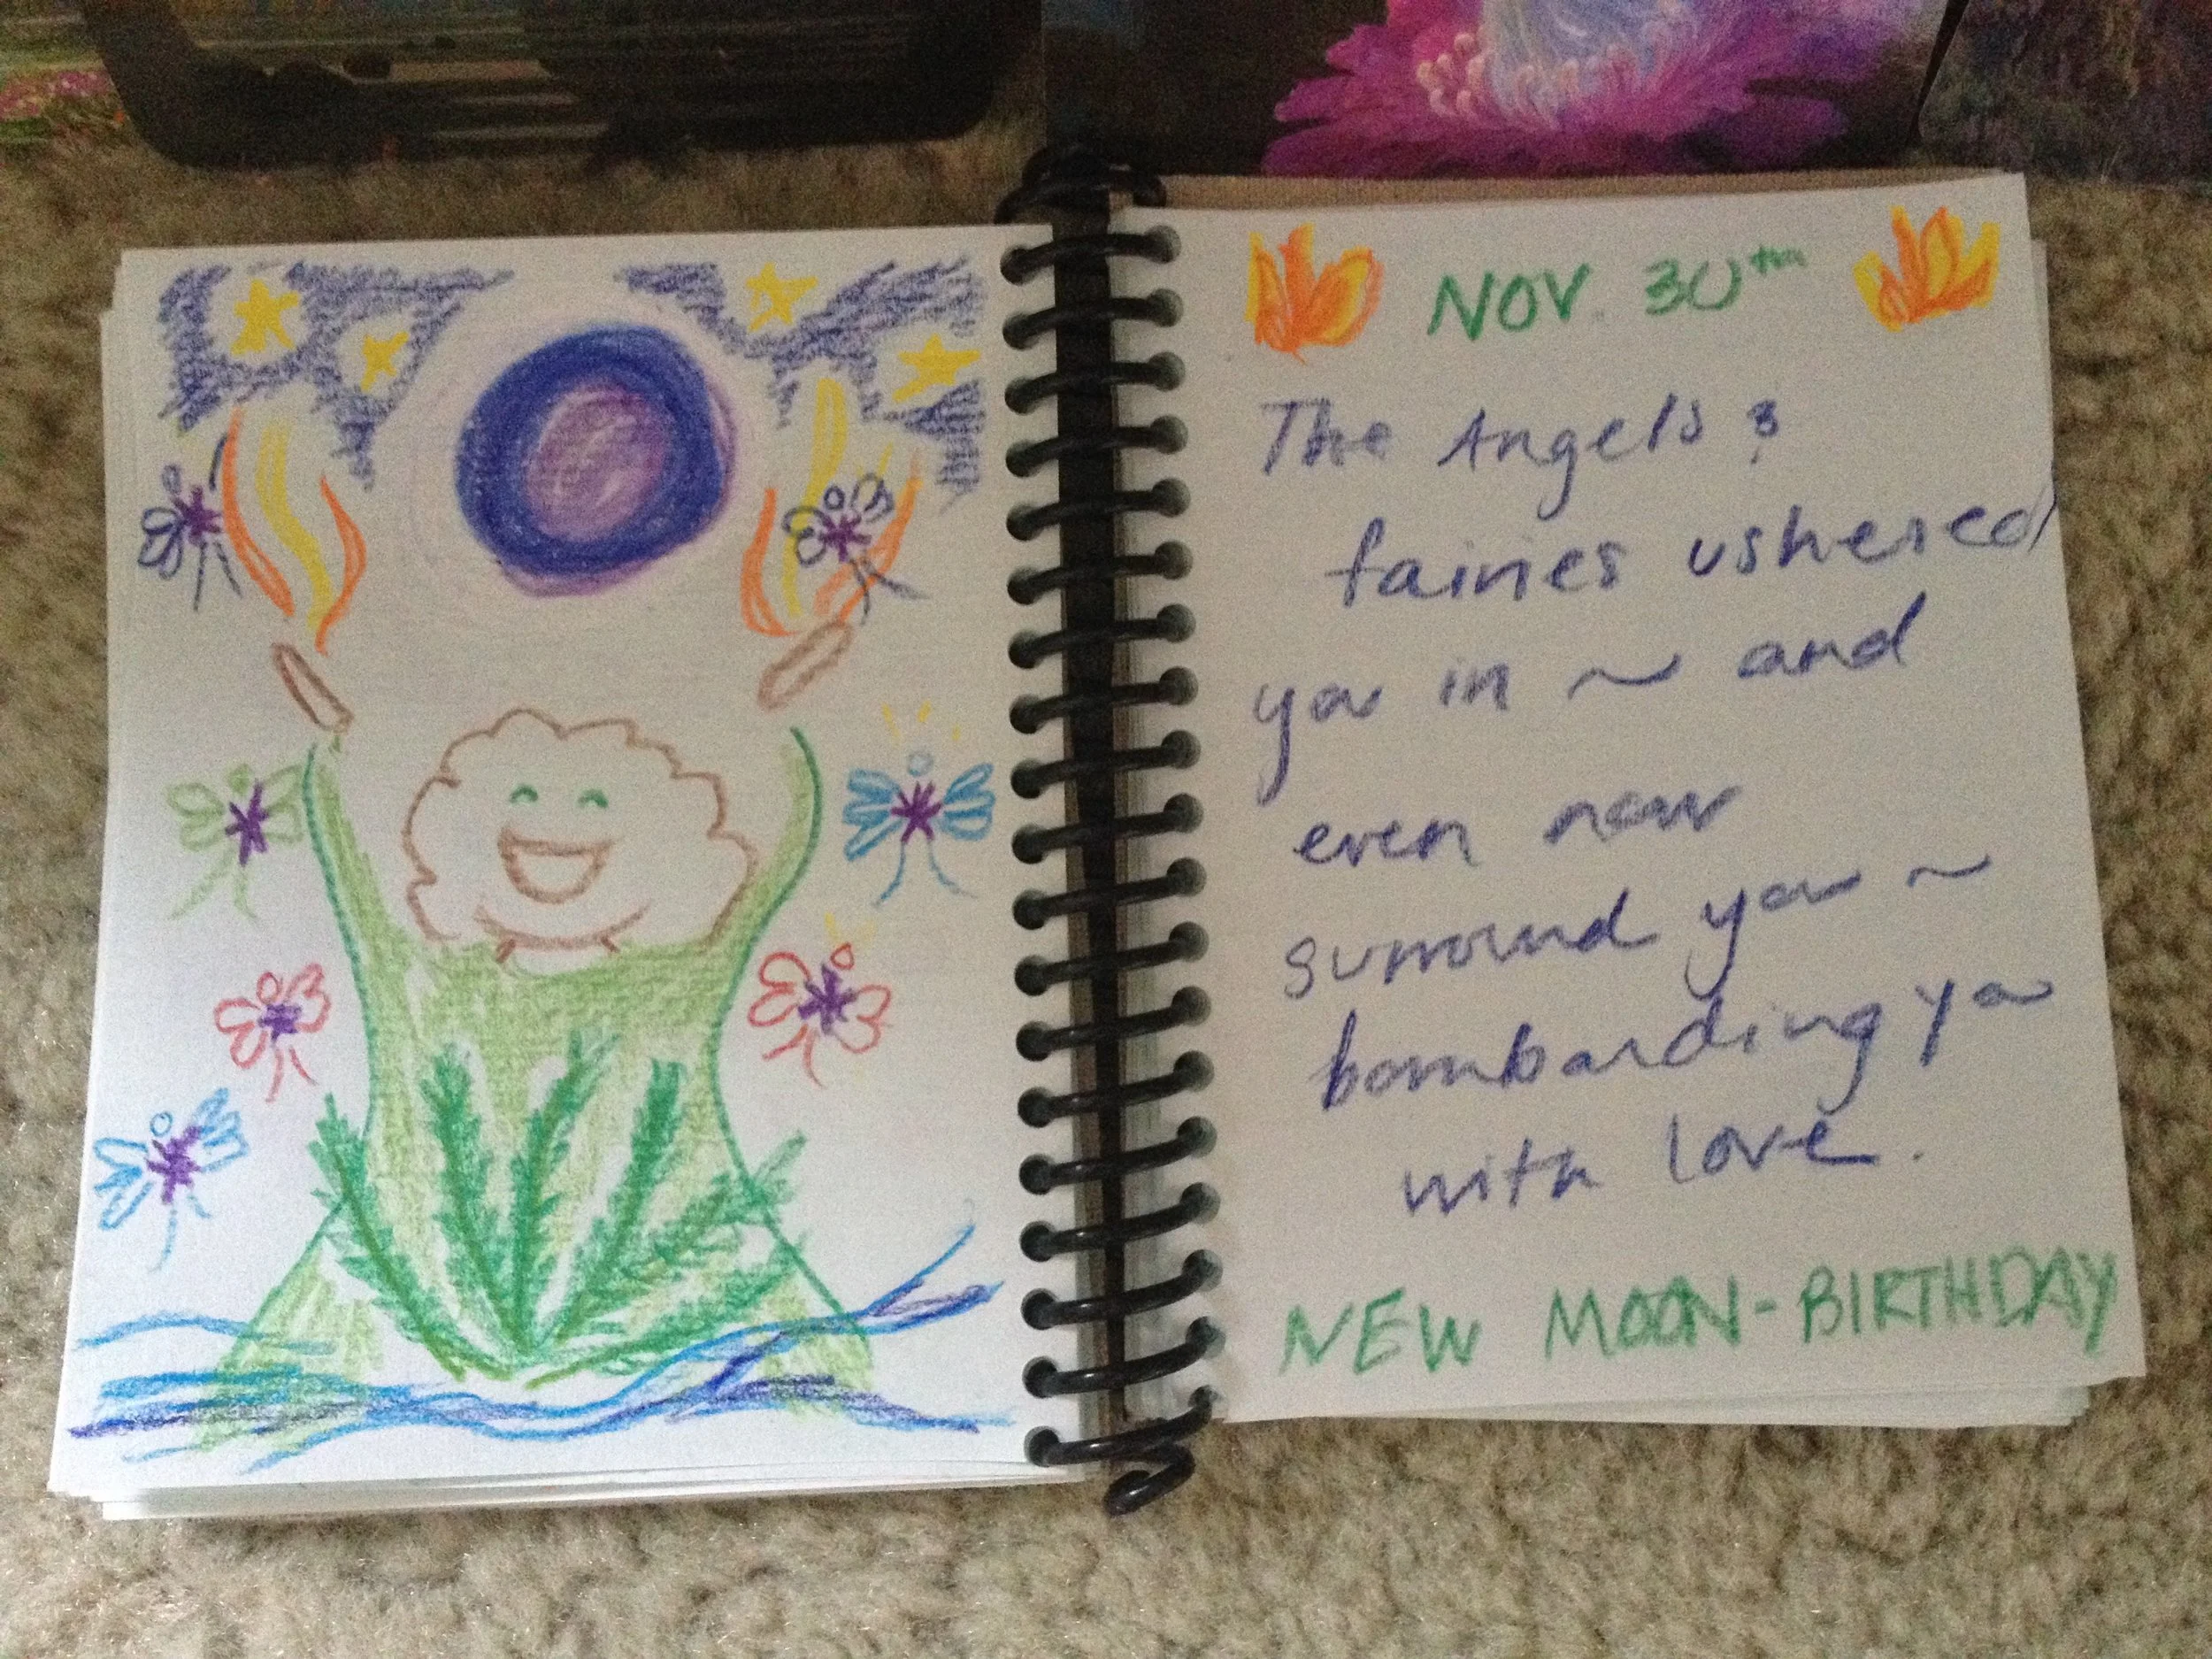 NOV. 30th
The Angels &
fairies ushered
you in ~ and
even now
surround you ~
bombarding you
with love.
NEW MOON-BIRTHDAY